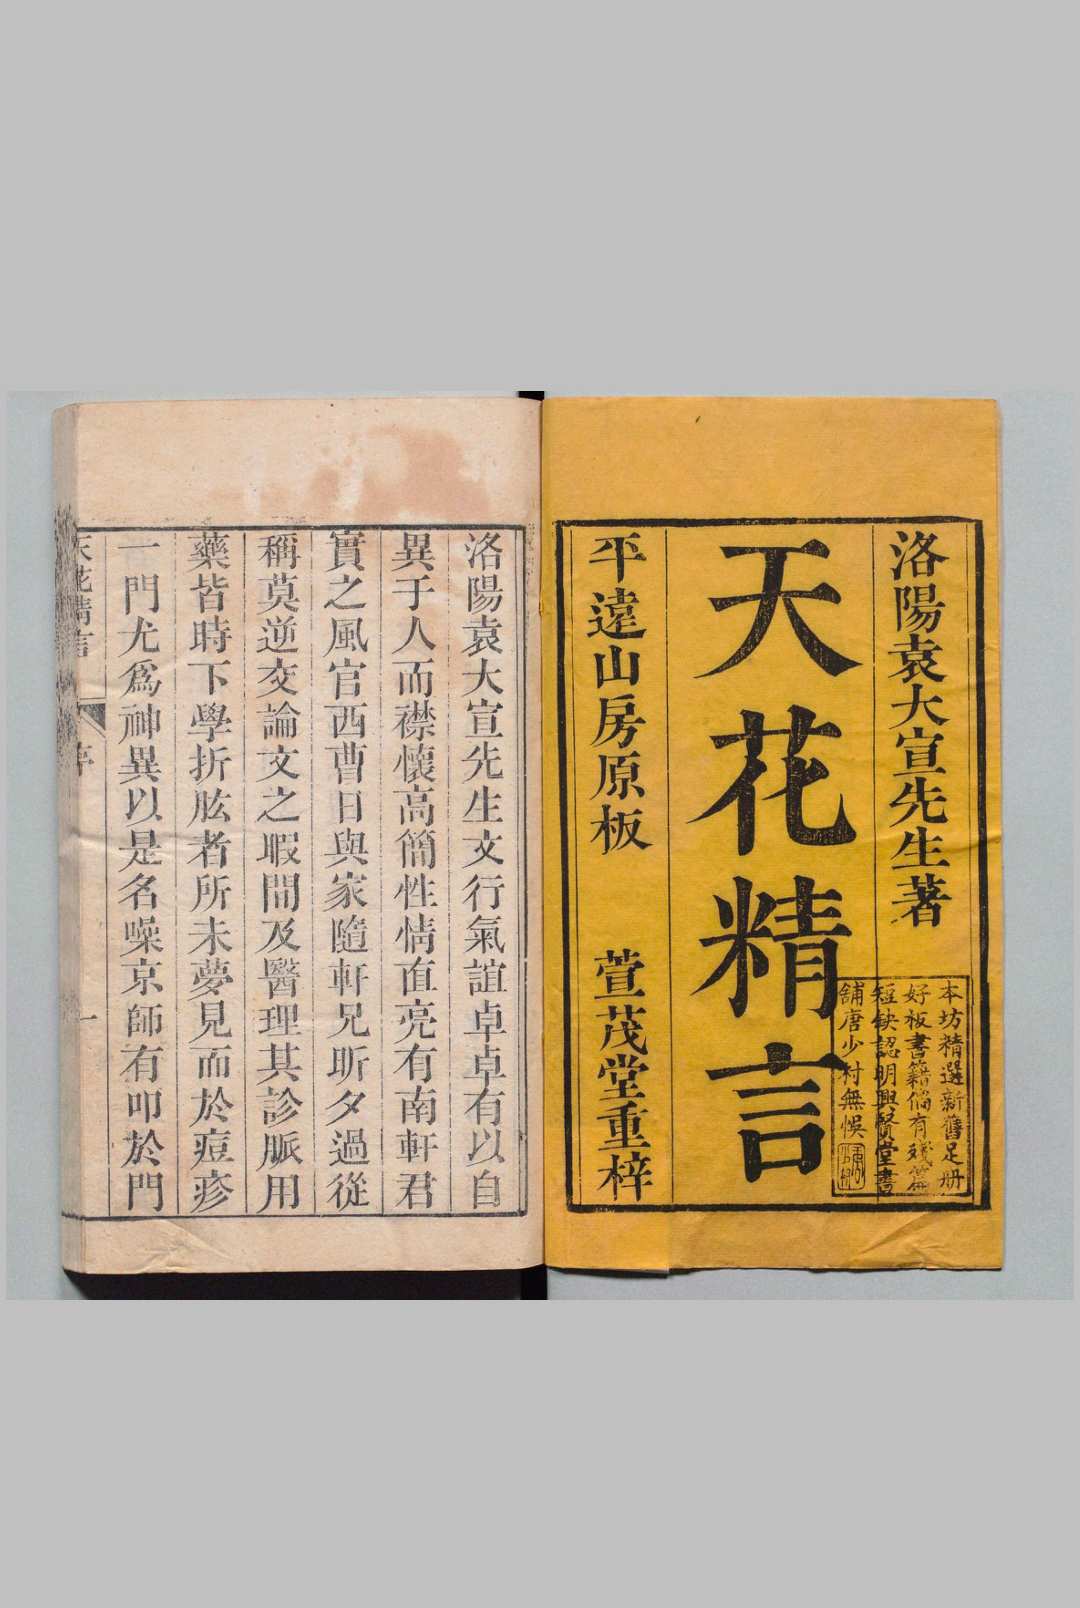 洛陽袁大宣先生著
天花精言
平遠山房原板 萱茂堂重梓
本坊精選新舊足册
好板書籍倘有殘篇
短缺認明興賢堂書
舖唐少村無悞
洛陽袁大宣先生文行氣誼卓卓有以自
異于人而襟懷高簡性情直亮有南軒君
實之風官西曹日與家隨軒兄昕夕過從
稱莫逆交論文之暇間及醫理其診脈用
藥皆時下學折肱者所未夢見而於痘疹
一門尤爲神異以是名噪京師有叩於門
天花精言 序 一